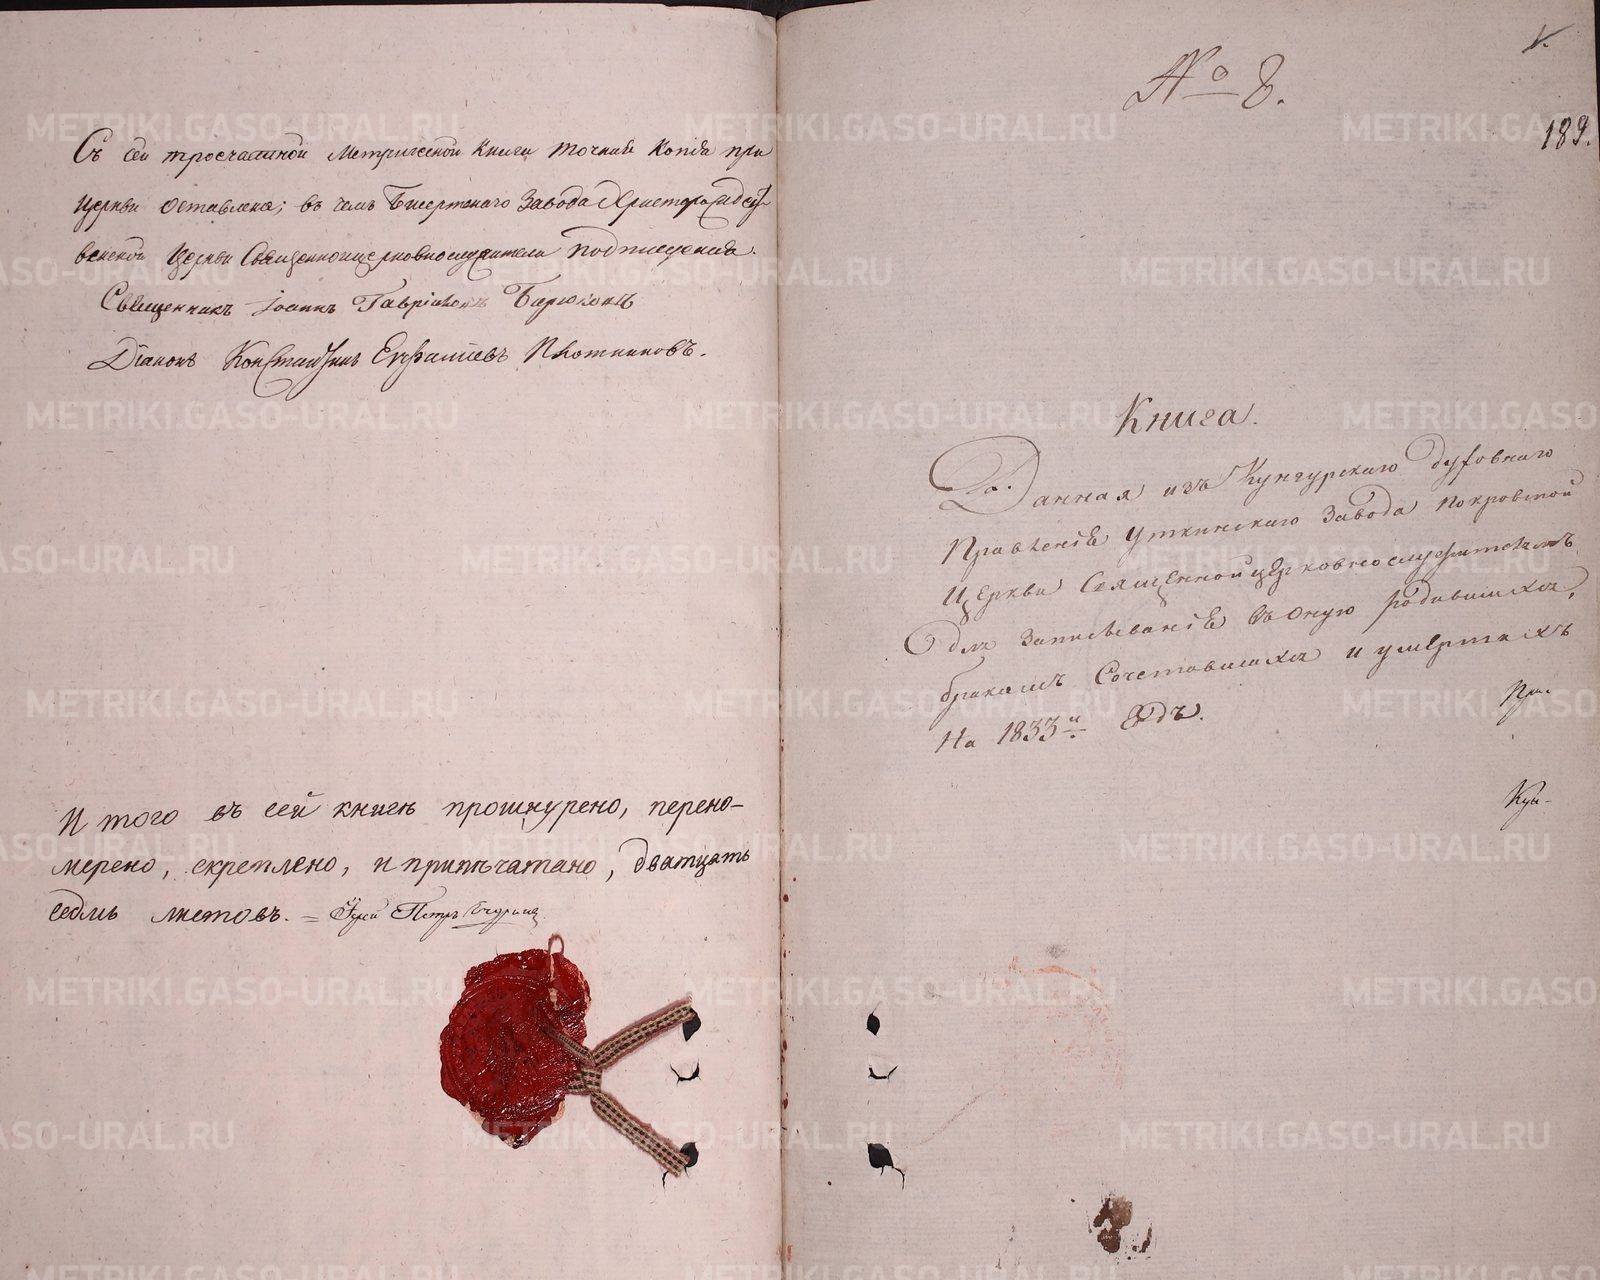 Съ сей троечастной Метрической Книги точная Копiя при
Церкви оставлена; въ чемъ Бисертскаго Завода Христорождест-
венской Церкви Священноицерковнослужители подписуемся.
Священникъ Iоаннъ Гаврiиловъ Бирюковъ
Дiаконъ Константинъ Плотниковъ.
И того въ сей книгѣ прошнурено, перено-
мерено, скреплено, и припѣчатано, дватцать
седмь листовъ. = Iерей Петръ
№ 8.
189.
Книга.
Данная изъ Кунгурскаго духовнаго
Правленiя Уткинскаго Завода Покровской
Церкви Священноицерковнослужителямъ
для записыванiя въ оную родившихся,
бракомъ Сочетавшихся и умершихъ
На 1833й Годъ.
При-
Кун-
METRIKI.GASO-URAL.RU